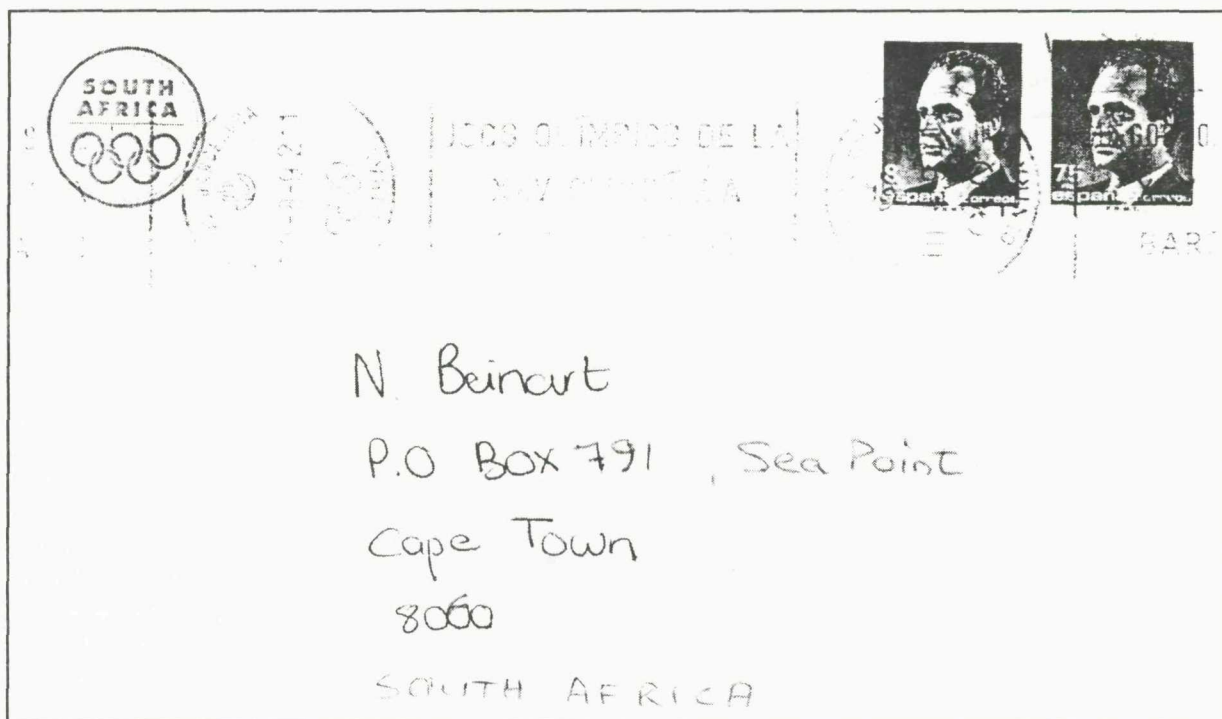 SOUTH
AFRICA
OLÍMPICO DE LA
75
españa correos
españa correos
BAR
N. Beinart
P.O BOX 791 , Sea Point
Cape Town
8060
SOUTH AFRICA